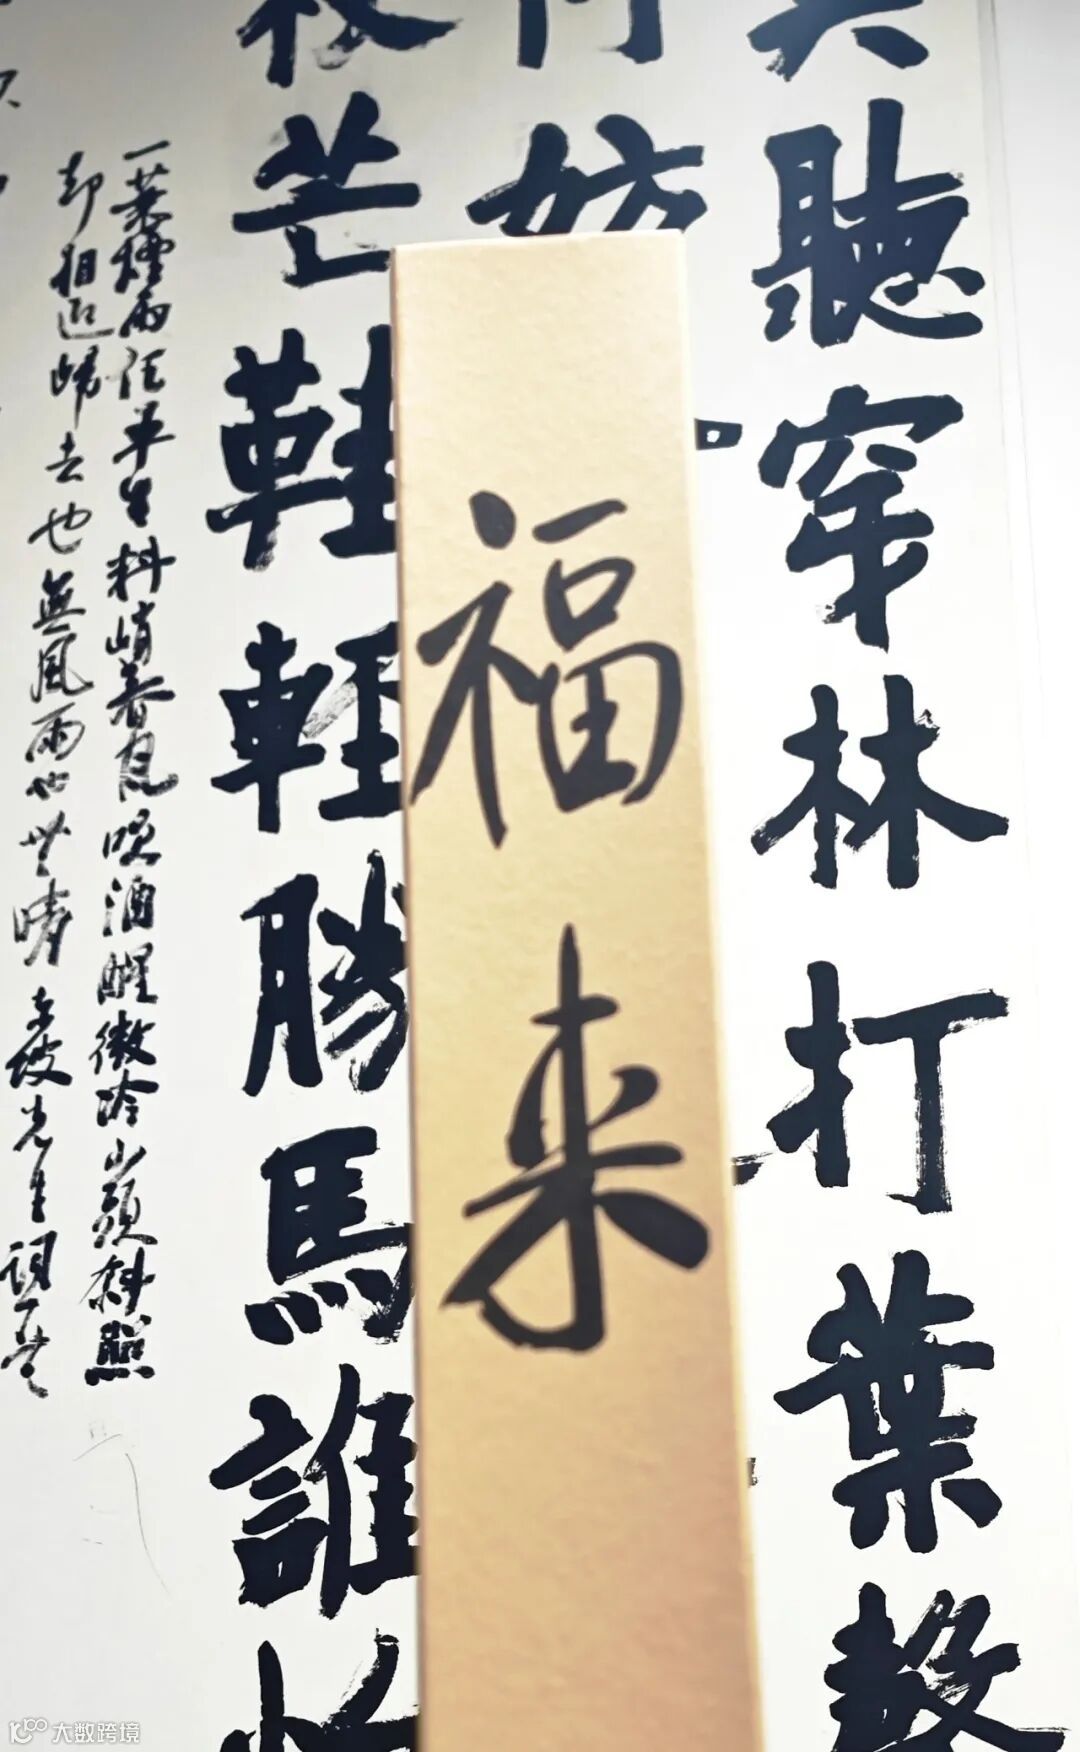 聽穿林打葉聲
妨
福来
芒鞋輕勝馬誰怕
一蓑煙雨任平生料峭春風吹酒醒微冷山頭斜照
却相迎歸去也無風雨也無晴東坡先生詞一首
大数跨境